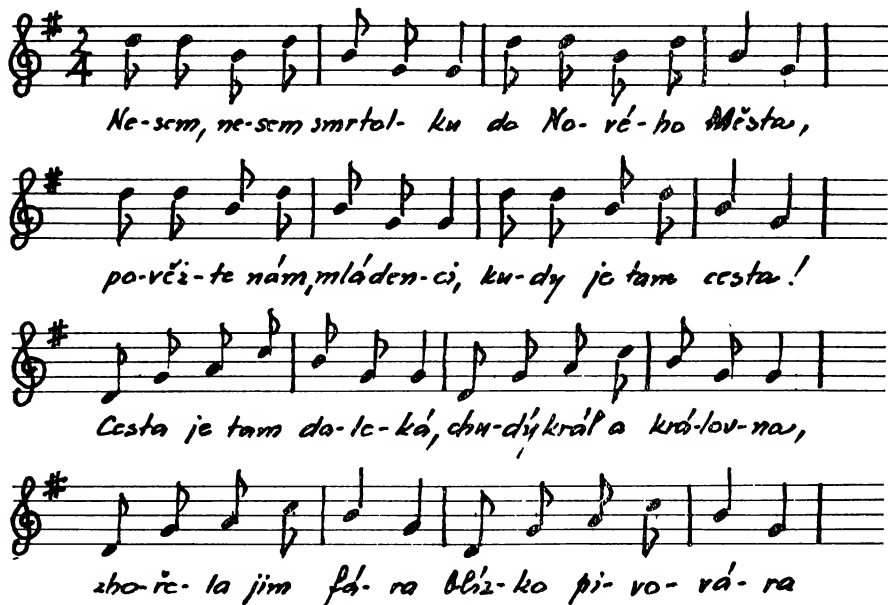 2
4
Ne-sem, ne-sem smrtol- ku do No- vé- ho Města,
po-věz-te nám, mláden-ci, ku-dy je tam cesta!
Cesta je tam da-le-ká, chu-dý král a krá-lov-na,
zho-ře- la jim fá- ra blíz-ko pi- vo- vá- ra